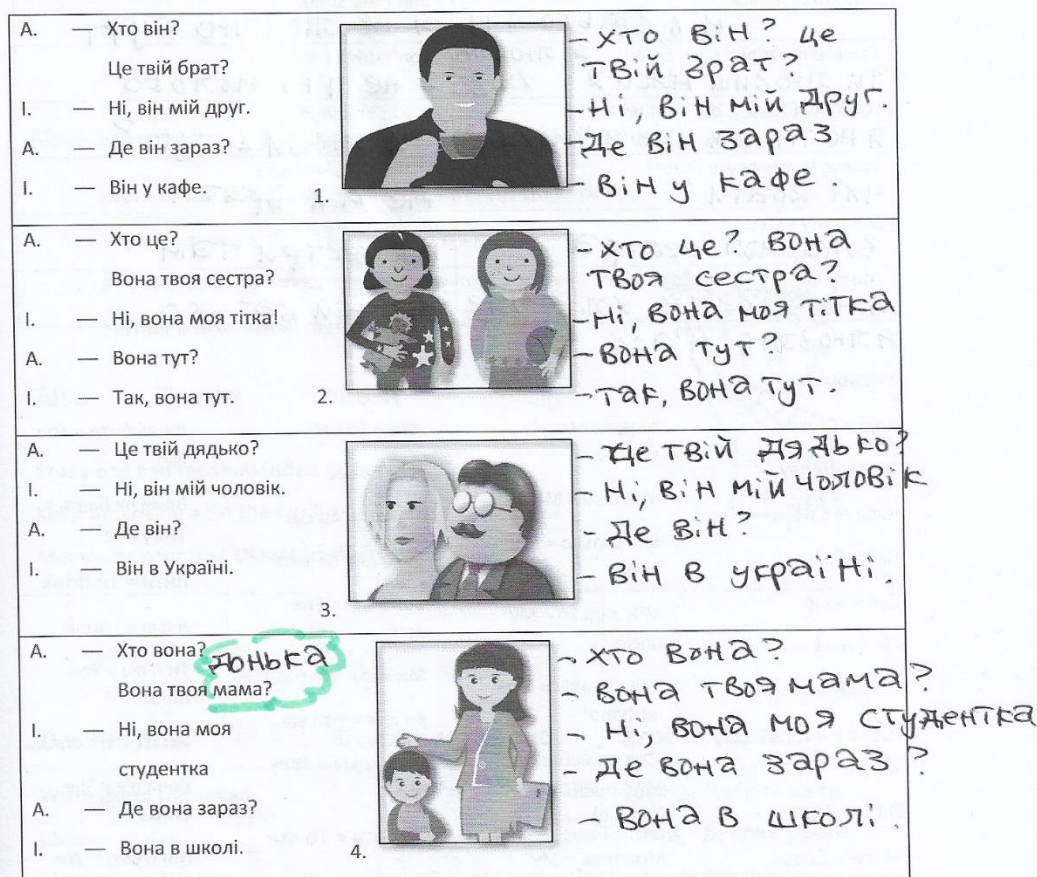 А. — Хто він?
Це твій брат?
І. — Ні, він мій друг.
А. — Де він зараз?
І. — Він у кафе.
1.
- хто він? це
твій зрат?
- Ні, він мій друг.
- Де він зараз
- він у кафе.
А. — Хто це?
Вона твоя сестра?
І. — Ні, вона моя тітка!
А. — Вона тут?
І. — Так, вона тут.
2.
- хто це? вона
твоя сестра?
- Ні, вона моя тітка
- вона тут?
- так, вона тут.
А. — Це твій дядько?
І. — Ні, він мій чоловік.
А. — Де він?
І. — Він в Україні.
3.
- Це твій дядько?
- Ні, він мій чоловік
- Де він?
- він в україні.
А. — Хто вона?
донька
Вона твоя мама?
І. — Ні, вона моя
студентка
А. — Де вона зараз?
І. — Вона в школі.
4.
- хто вона?
- вона твоя мама?
- Ні, вона моя студентка
- де вона зараз?
- вона в школі.